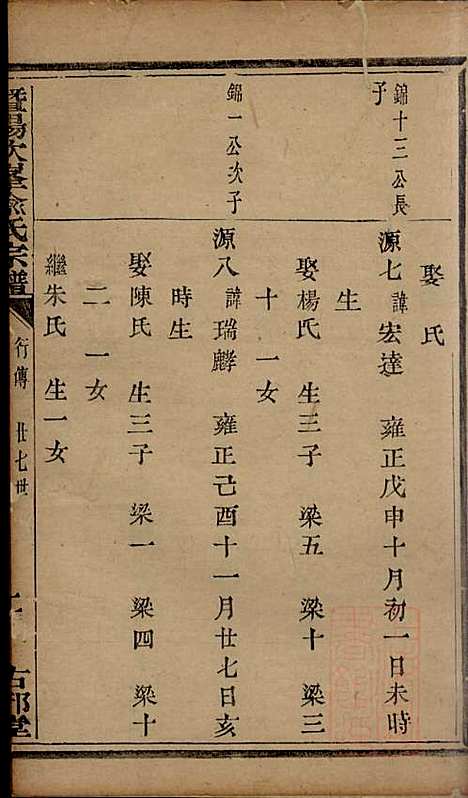 娶 氏
錦十三公長子
源七 諱 宏達 雍正戊申十月初一日未時
生
娶楊氏 生三子 梁五 梁十 梁三
十 一女
錦一公次子
源八 諱 瑞麟 雍正己酉十一月廿七日亥
時生
娶陳氏 生三子 梁一 梁四 梁十
二 一女
繼朱氏 生一女
暨陽次峯俞氏宗譜
行傳 廿七世